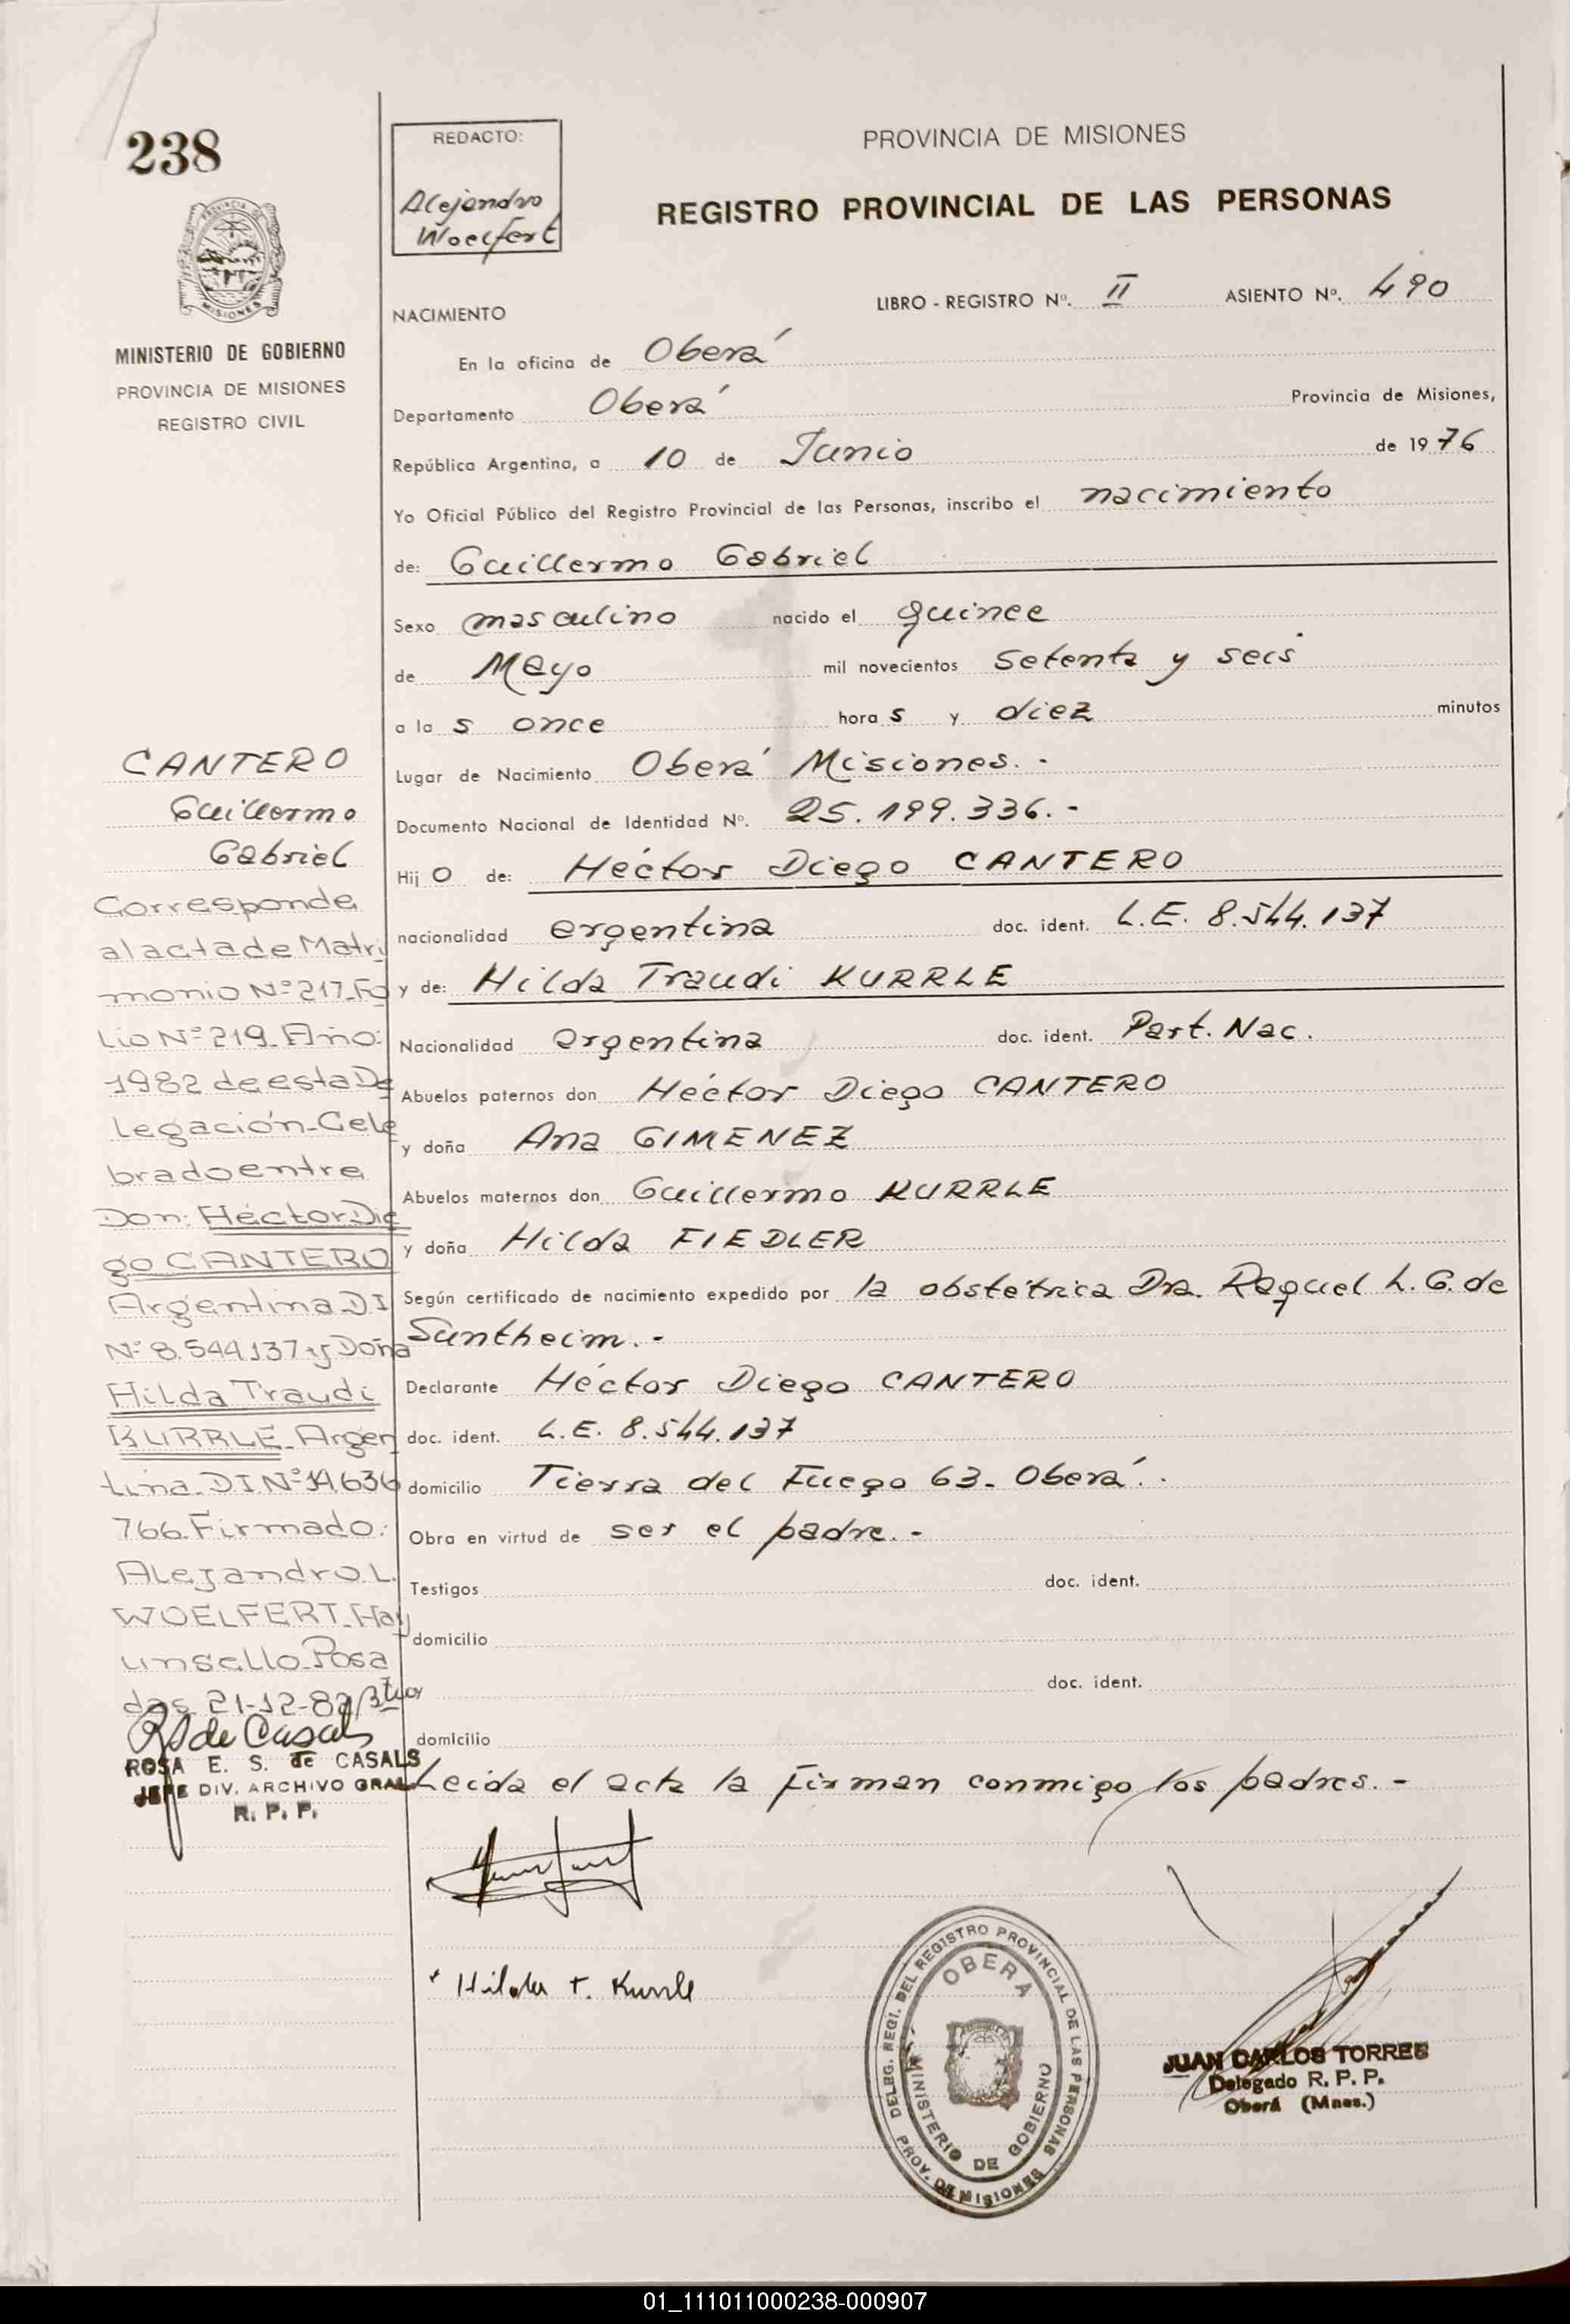 238
PROVINCIA DE MISIONES
MINISTERIO DE GOBIERNO
PROVINCIA DE MISIONES
REGISTRO CIVIL
CANTERO
Guillermo
Gabriel
Corresponde
al acta de Matri
monio Nº 217. Fo
lio Nº 219. Año:
1982 de esta De
legación. Cele
brado entre
Don: Héctor Die
go CANTERO
Argentina D.I
Nº 8.544.137 y Doña
Hilda Traudi
KURRLE. Argen
tina. D.I. Nº 14.636
766. Firmado:
Alejandro L.
WOELFERT. Hay
un sello. Posa
das 21-12-82
R S de Casals
ROSA E. S. de CASALS
JEFE DIV. ARCHIVO GRAL
R. P. P.
REDACTO:
Alejandro
Woelfert
PROVINCIA DE MISIONES
REGISTRO PROVINCIAL DE LAS PERSONAS
LIBRO - REGISTRO Nº. II ASIENTO Nº. 490
NACIMIENTO
En la oficina de Oberá
Departamento Oberá Provincia de Misiones,
República Argentina, a 10 de Junio de 1976
Yo Oficial Público del Registro Provincial de las Personas, inscribo el nacimiento
de: Guillermo Gabriel
Sexo masculino nacido el quince
de Mayo mil novecientos setenta y seis
a las once horas y diez minutos
Lugar de Nacimiento Oberá Misiones. -
Documento Nacional de Identidad Nº. 25.199.336. -
Hijo de: Héctor Diego CANTERO
nacionalidad argentina doc. ident. L.E. 8.544.137
y de: Hilda Traudi KURRLE
Nacionalidad argentina doc. ident. Part. Nac.
Abuelos paternos don Héctor Diego CANTERO
y doña Ana GIMENEZ
Abuelos maternos don Guillermo KURRLE
y doña Hilda FIEDLER
Según certificado de nacimiento expedido por la obstétrica Dra. Raquel L. G. de
Suntheim. -
Declarante Héctor Diego CANTERO
doc. ident. L.E. 8.544.137
domicilio Tierra del Fuego 63. Oberá. .
Obra en virtud de ser el padre. -
Testigos doc. ident.
domicilio
doc. ident.
domicilio
Leida el acta la firman conmigo los padres. -
Hilda T. Kurrle
DELEG. REGI. DEL REGISTRO PROVINCIAL DE LAS PERSONAS
OBERA
MINISTERIO DE GOBIERNO
PROV. DE MISIONES
JUAN CARLOS TORRES
Delegado R. P. P.
Oberá (Mnes.)
01_111011000238-000907